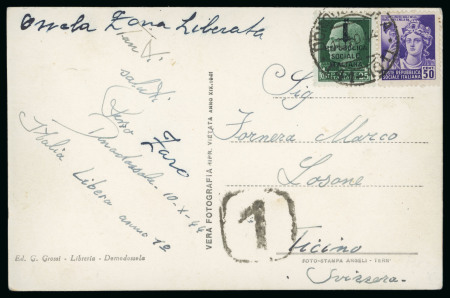 Ossola Zona Liberata
Tanti
saluti
Zaro
Domodossola - 10-X-44
Italia Libera anno 1º
Ed. G. Grossi - Libreria - Domodossola
VERA FOTOGRAFIA - RIPR. VIETATA ANNO XIX, 1941
REPUBBLICA
SOCIALE
ITALIANA
POSTE REPUBBLICA
SOCIALE ITALIANA 50
Sig
Fornera Marco
Losone
Ticino
FOTO-STAMPA ANGELI - TERNI
Svizzera
1